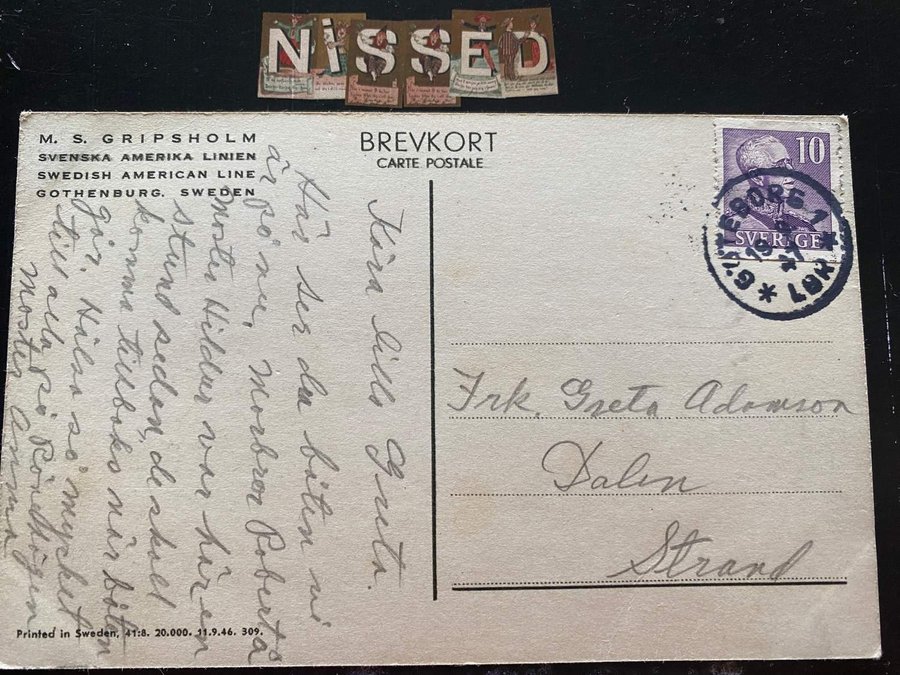 NiSSED
M. S. GRIPSHOLM
SVENSKA AMERIKA LINIEN
SWEDISH AMERICAN LINE
GOTHENBURG. SWEDEN
BREVKORT
CARTE POSTALE
10
SVERIGE
GÖTEBORG 1
19
47
LBR
Kära lilla Greta.
Här ser du båten vi
är på nu, Morbror Robert å
Moster Hilda var här en
stund sedan, de skall
komma tillbaks när båten
går. Hälsa så mycket
till alla på Rördhögen
Moster Anna
Frk. Greta Adamson
Dalen
Strand
Printed in Sweden, 41:8. 20.000. 11.9.46. 309.